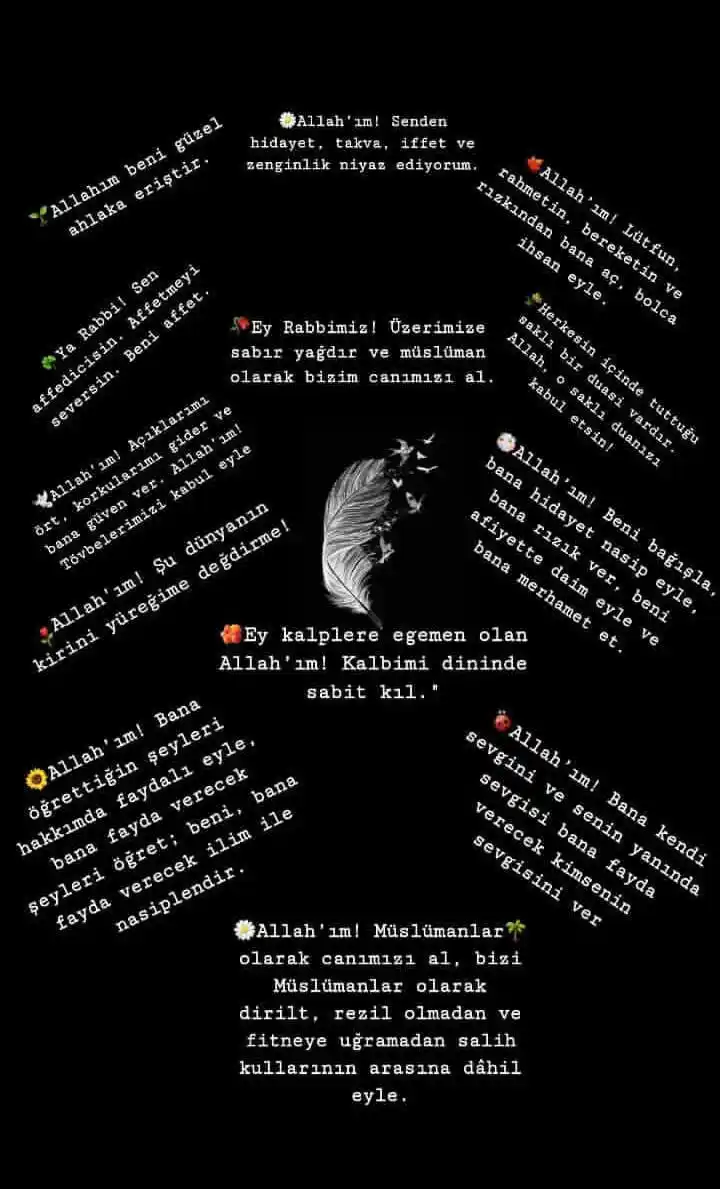 🌼Allah'ım! Senden
hidayet, takva, iffet ve
zenginlik niyaz ediyorum.
🌱Allahım beni güzel
ahlaka eriştir.
🍁Allah'ım! Lütfun,
rahmetin, bereketin ve
rızkından bana aç, bolca
ihsan eyle.
🍀Ya Rabbi! Sen
affedicisin. Affetmeyi
seversin. Beni affet.
🥀Ey Rabbimiz! Üzerimize
sabır yağdır ve müslüman
olarak bizim canımızı al.
Herkesin içinde tuttuğu
saklı bir duasi vardır.
Allah, o saklı duanızı
kabul etsin!
🕊Allah'ım! Açıklarımı
ört, korkularımı gider ve
bana güven ver. Allah'ım!
Tövbelerimizi kabul eyle
Allah'ım! Beni bağışla,
bana hidayet nasip eyle,
bana rızık ver, beni
afiyette daim eyle ve
bana merhamet et.
🌹Allah'ım! Şu dünyanın
kirini yüreğime değdirme!
🌺Ey kalplere egemen olan
Allah'ım! Kalbimi dininde
sabit kıl."
🌻Allah'ım! Bana
öğrettiğin şeyleri
hakkımda faydalı eyle,
bana fayda verecek
şeyleri öğret; beni, bana
fayda verecek ilim ile
nasiplendir.
🐞Allah'ım! Bana kendi
sevgini ve senin yanında
sevgisi bana fayda
verecek kimsenin
sevgisini ver
🌼Allah'ım! Müslümanlar🌴
olarak canımızı al, bizi
Müslümanlar olarak
dirilt, rezil olmadan ve
fitneye uğramadan salih
kullarının arasına dâhil
eyle.